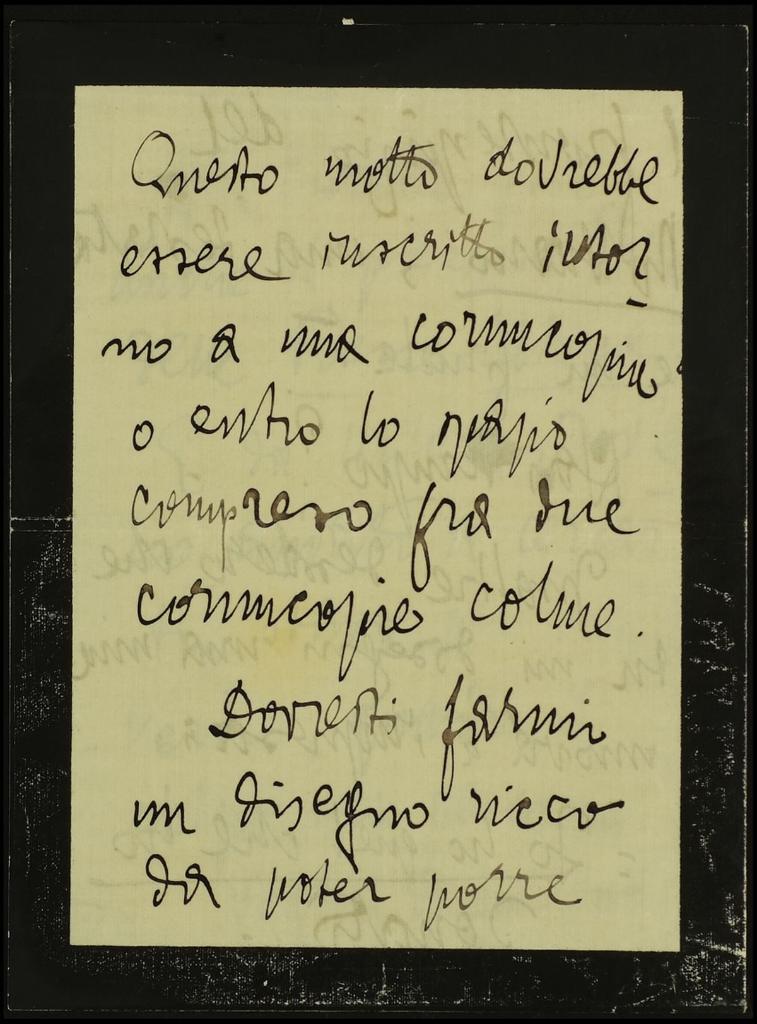 Questo motto dovrebbe
essere inscritto intor-
no a una cornucopia
o entro lo spazio
compreso fra due
cornucopie colme.
Dovresti farmi
un disegno ricco
da poter porre